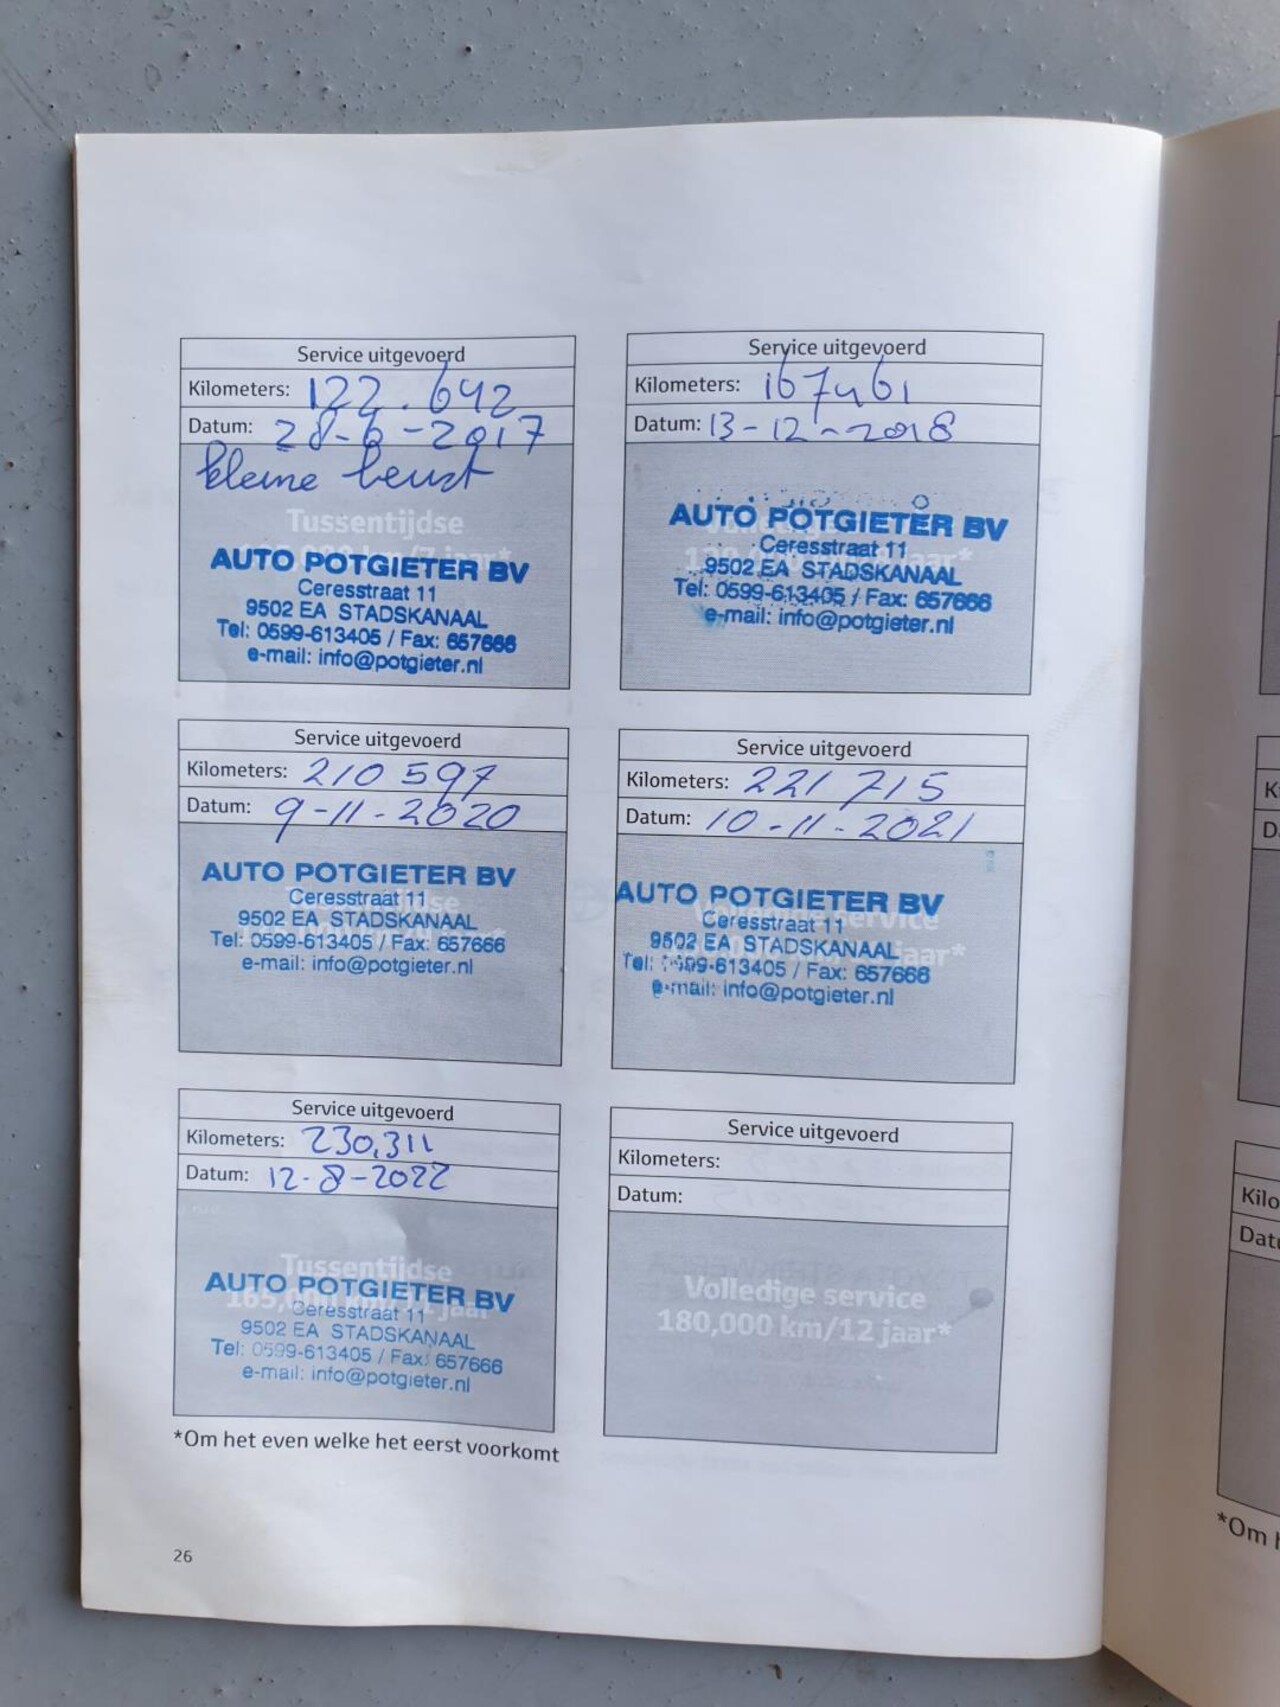 Service uitgevoerd
Kilometers: 122.642
Datum: 28-6-2017
kleine beurt
Tussentijdse
km/7 jaar*
AUTO POTGIETER BV
Ceresstraat 11
9502 EA STADSKANAAL
Tel: 0599-613405 / Fax: 657666
e-mail: info@potgieter.nl
Service uitgevoerd
Kilometers: 167461
Datum: 13-12-2018
jaar*
AUTO POTGIETER BV
Ceresstraat 11
9502 EA STADSKANAAL
Tel: 0599-613405 / Fax: 657666
e-mail: info@potgieter.nl
Service uitgevoerd
Kilometers: 210 597
Datum: 9-11-2020
Tussentijdse
AUTO POTGIETER BV
Ceresstraat 11
9502 EA STADSKANAAL
Tel: 0599-613405 / Fax: 657666
e-mail: info@potgieter.nl
Service uitgevoerd
Kilometers: 221 715
Datum: 10-11-2021
AUTO POTGIETER BV
Volledige service
Ceresstraat 11
9502 EA STADSKANAAL
jaar*
Tel: 0599-613405 / Fax: 657666
e-mail: info@potgieter.nl
Service uitgevoerd
Kilometers: 230,311
Datum: 12-8-2022
Tussentijdse
AUTO POTGIETER BV
165,000 km/11 jaar*
Ceresstraat 11
9502 EA STADSKANAAL
Tel: 0599-613405 / Fax: 657666
e-mail: info@potgieter.nl
Service uitgevoerd
Kilometers:
Datum:
Volledige service
180,000 km/12 jaar*
*Om het even welke het eerst voorkomt
26
Kilo
*Om